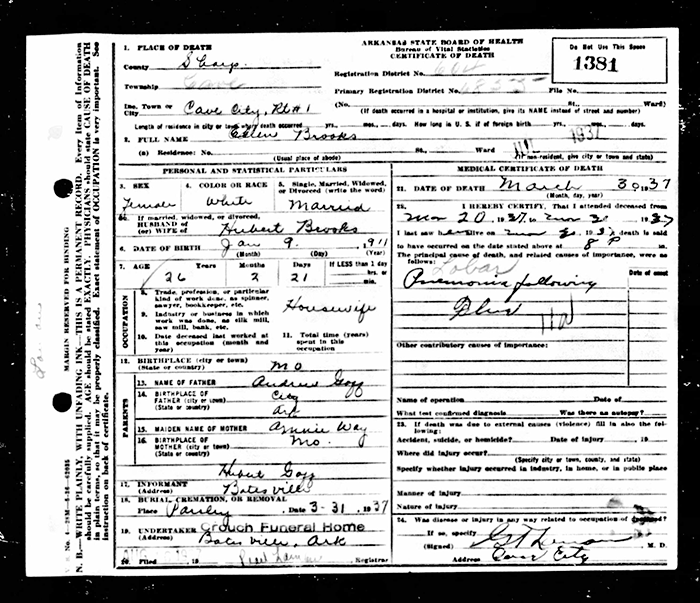 ARKANSAS STATE BOARD OF HEALTH
Bureau of Vital Statistics
CERTIFICATE OF DEATH
Do Not Use This Space
1381
1. PLACE OF DEATH
County Sharp
Township Cave
Inc. Town or City Cave City, Rt #1
Registration District No.
Primary Registration District No. File No.
(No. St., Ward)
(If death occurred in a hospital or institution, give its NAME instead of street and number)
Length of residence in city or town where death occurred yrs. mos. days. How long in U. S. if of foreign birth yrs. mos. days
2. FULL NAME Brooks
(a) Residence: No. St., Ward 1937
(Usual place of abode) (If non-resident, give city or town and state)
PERSONAL AND STATISTICAL PARTICULARS
3. SEX Female
4. COLOR OR RACE White
5. Single, Married, Widowed, or Divorced (write the word) Married
5a. If married, widowed, or divorced, HUSBAND of (or) WIFE of Hubert Brooks
6. DATE OF BIRTH Jan 9 1911
(Month) (Day) (Year)
7. AGE 26 Years 2 Months 21 Days If LESS than 1 day hrs. or min.
OCCUPATION
8. Trade, profession, or particular kind of work done, as spinner, sawyer, bookkeeper, etc. Housewife
9. Industry or business in which work was done, as silk mill, saw mill, bank, etc.
10. Date deceased last worked at this occupation (month and year)
11. Total time (years) spent in this occupation
12. BIRTHPLACE (city or town) (State or country) MO
PARENTS
13. NAME OF FATHER Andrew
14. BIRTHPLACE OF FATHER (city or town) (State or country) City Ark
15. MAIDEN NAME OF MOTHER Annie Way
16. BIRTHPLACE OF MOTHER (city or town) (State or country) Mo.
17. INFORMANT Hubert
(Address) Batesville
18. BURIAL, CREMATION, OR REMOVAL
Place Date 3-31, 1937
19. UNDERTAKER Crouch Funeral Home
(Address) Batesville, Ark
20. Filed 19 Registrar
MEDICAL CERTIFICATE OF DEATH
21. DATE OF DEATH March 30, 37
(Month, day, year)
22. I HEREBY CERTIFY, That I attended deceased from
Mar 20, 1937, to Mar 30, 1937
I last saw her alive on Mar 30, 193 ; death is said
to have occurred on the date stated above at 8 P m.
The principal cause of death, and related causes of importance, were as follows: Date of onset
Lobar
Pneumonia following
Flu
Other contributory causes of importance:
Name of operation Date of
What test confirmed diagnosis Was there an autopsy?
23. If death was due to external causes (violence) fill in also the following:
Accident, suicide, or homicide? Date of injury , 19
Where did injury occur?
(Specify city or town, county, and state)
Specify whether injury occurred in industry, in home, or in public place
Manner of injury
Nature of injury
24. Was disease or injury in any way related to occupation of deceased?
If so, specify
(Signed) M. D.
(Address) Cave City
MARGIN RESERVED FOR BINDING
N. B.—WRITE PLAINLY, WITH UNFADING INK—THIS IS A PERMANENT RECORD. Every item of information
should be carefully supplied. AGE should be stated EXACTLY. PHYSICIANS should state CAUSE OF DEATH
in plain terms, so that it may be properly classified. Exact statement of OCCUPATION is very important. See
instruction on back of certificate.